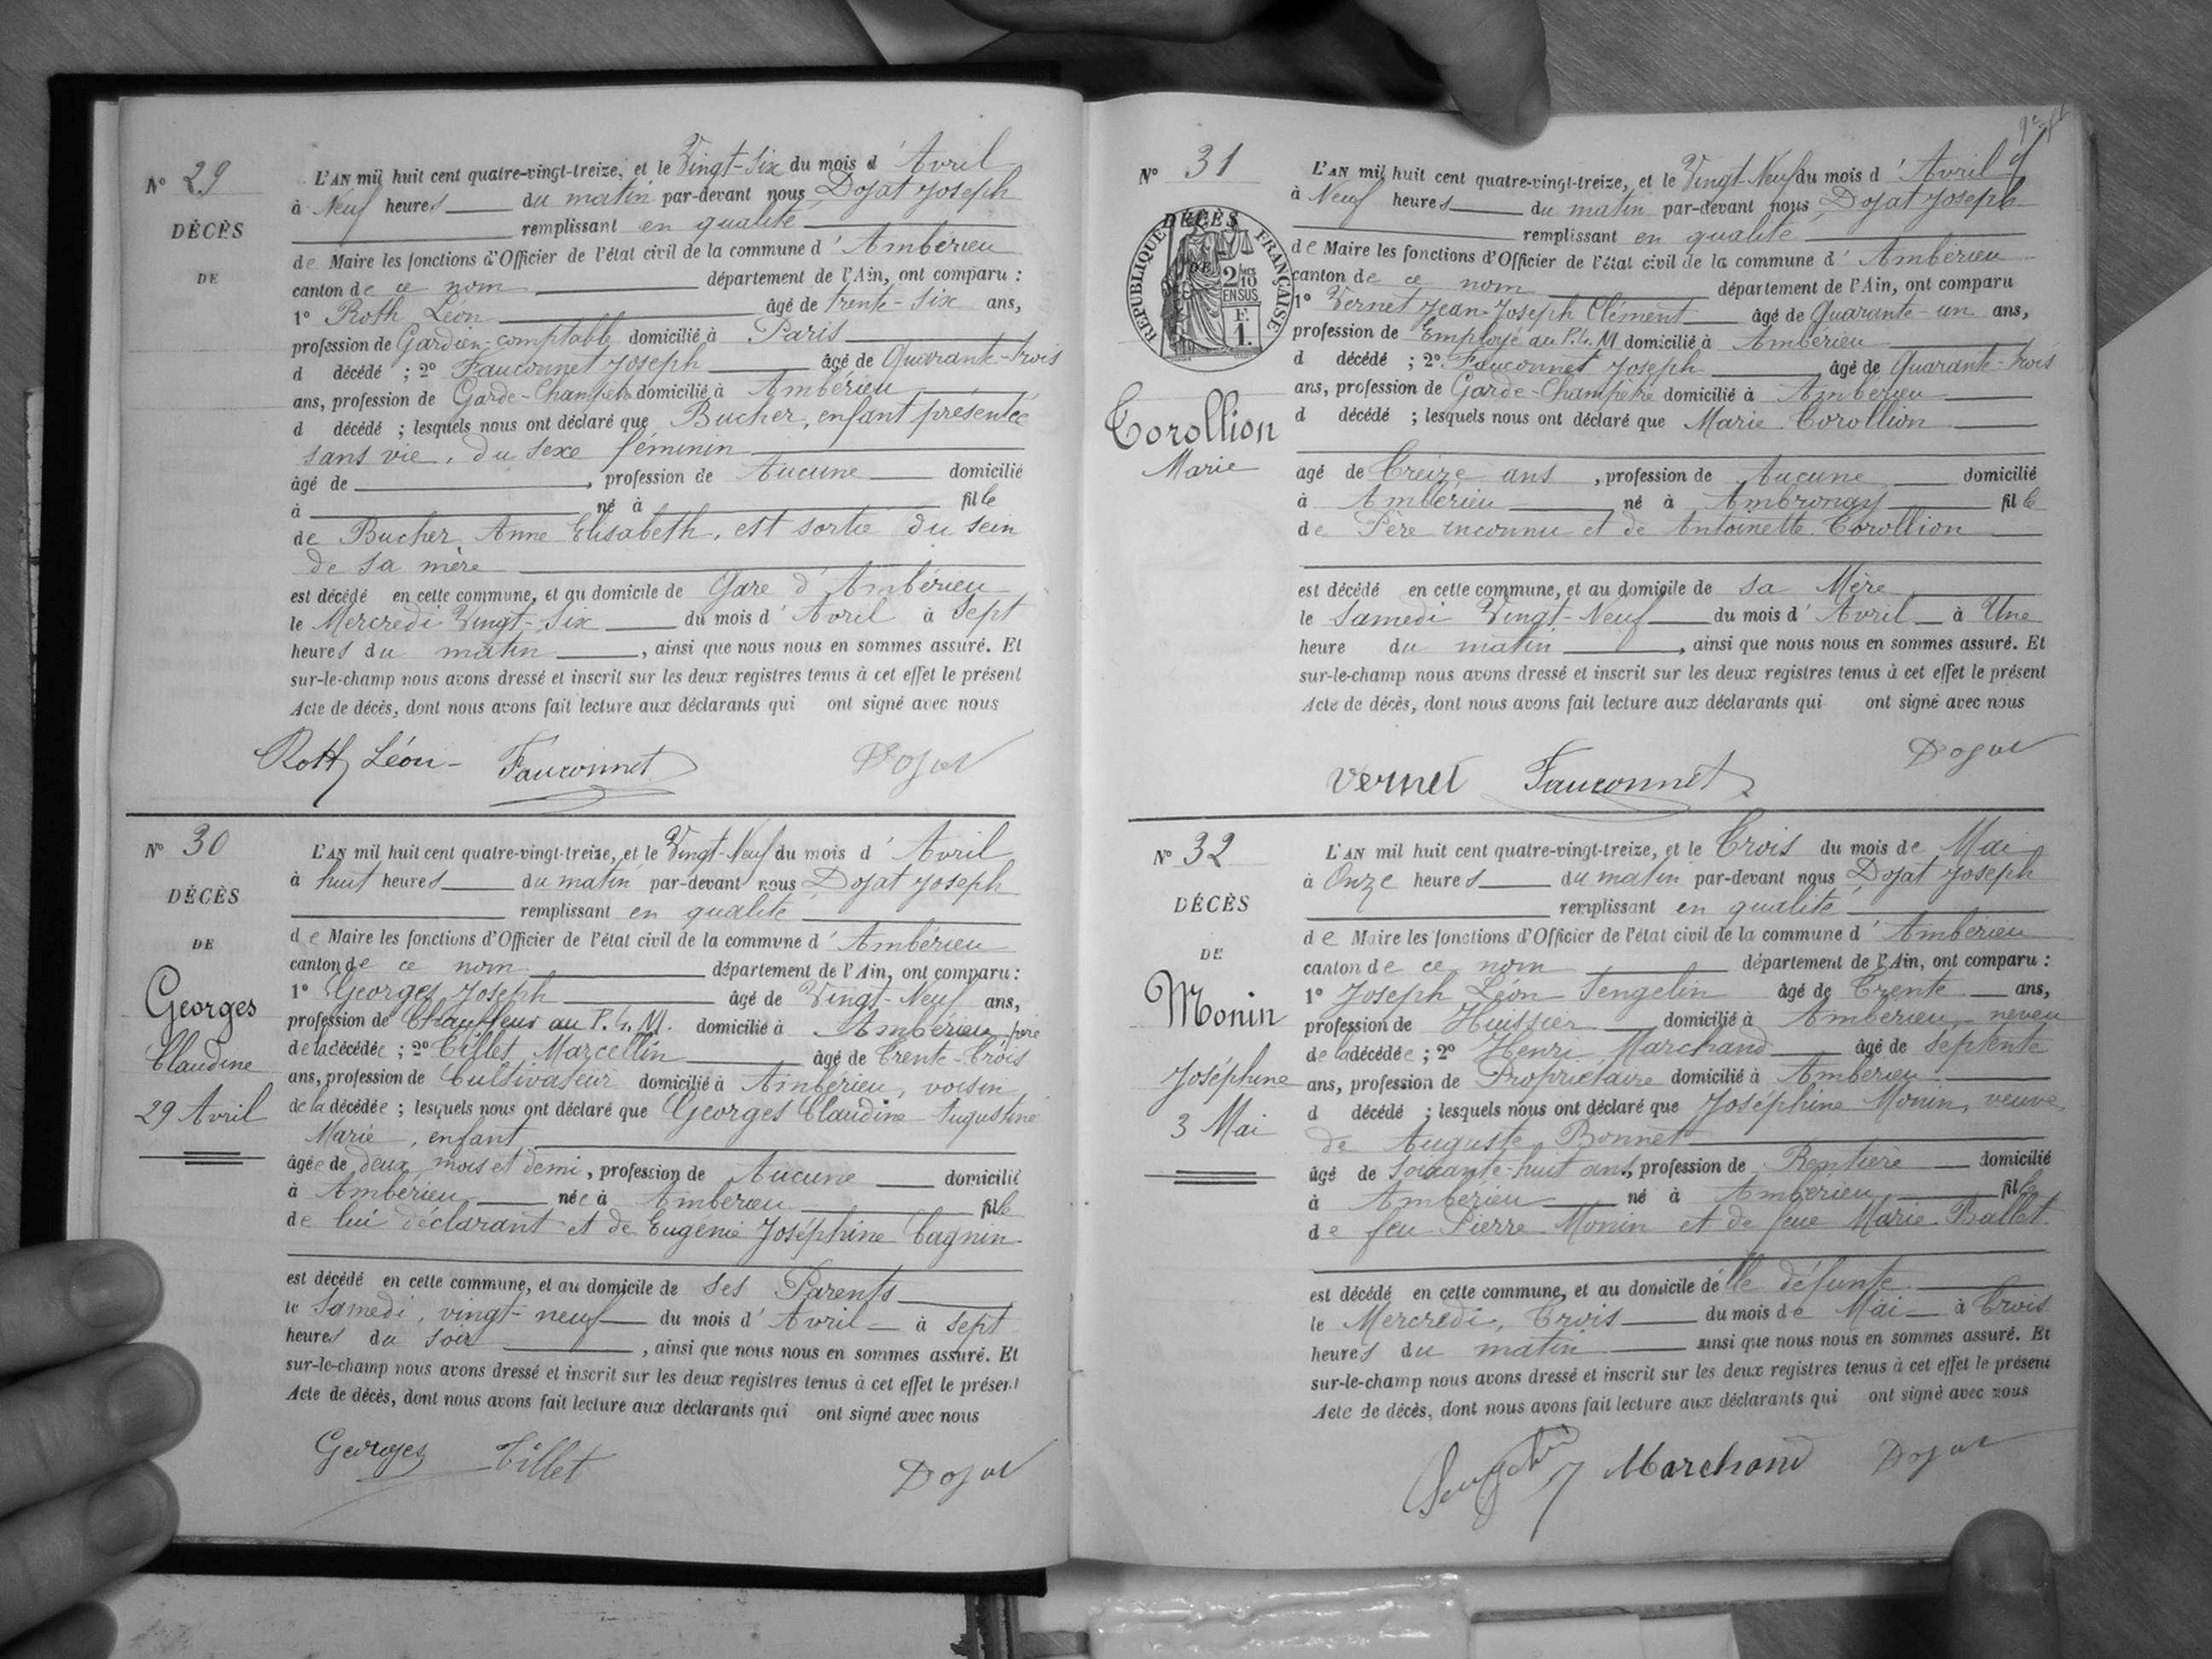 N° 29
DÉCÈS
DE
L'AN mil huit cent quatre-vingt-treize, et le Vingt-Six du mois d'Avril
à Neuf heures du matin par-devant nous Dojat Joseph
remplissant en qualité
de Maire les fonctions d'Officier de l'état civil de la commune d'Ambérieu
canton de ce nom département de l'Ain, ont comparu :
1° Roth Léon âgé de trente-six ans,
profession de Gardien-comptable domicilié à Paris
d décédé ; 2° Fauconnet Joseph âgé de Quarante-trois
ans, profession de Garde-Champêtre domicilié à Ambérieu
d décédé ; lesquels nous ont déclaré que Bucher, enfant présentée
sans vie, du sexe féminin
âgé de , profession de Aucune domicilié
à né à fille
de Bucher Anne Elisabeth, est sortie du sein
de sa mère
est décédé en cette commune, et au domicile de Gare d'Ambérieu
le Mercredi Vingt-Six du mois d'Avril à Sept
heures du matin , ainsi que nous nous en sommes assuré. Et
sur-le-champ nous avons dressé et inscrit sur les deux registres tenus à cet effet le présent
Acte de décès, dont nous avons fait lecture aux déclarants qui ont signé avec nous
Roth Léon Fauconnet Dojat
N° 30
DÉCÈS
DE
Georges
Claudine
29 Avril
L'AN mil huit cent quatre-vingt-treize, et le Vingt-Neuf du mois d'Avril
à huit heures du matin par-devant nous Dojat Joseph
remplissant en qualité
de Maire les fonctions d'Officier de l'état civil de la commune d'Ambérieu
canton de ce nom département de l'Ain, ont comparu :
1° Georges Joseph âgé de Vingt-Neuf ans,
profession de Chauffeur au P.L.M. domicilié à Ambérieu, père
de la décédée ; 2° Tillet Marcellin âgé de Trente-Trois
ans, profession de Cultivateur domicilié à Ambérieu, voisin
de la décédée ; lesquels nous ont déclaré que Georges Claudine Augustine
Marie, enfant
âgée de deux mois et demi, profession de Aucune domicilié
à Ambérieu née à Ambérieu fille
de lui déclarant et de Eugénie Joséphine Cagnin
est décédé en cette commune, et au domicile de ses Parents
le Samedi, vingt-neuf du mois d'Avril à sept
heures du soir , ainsi que nous nous en sommes assuré. Et
sur-le-champ nous avons dressé et inscrit sur les deux registres tenus à cet effet le présent
Acte de décès, dont nous avons fait lecture aux déclarants qui ont signé avec nous
Georges Tillet Dojat
N° 31
DÉCÈS
DE
RÉPUBLIQUE FRANÇAISE
2/10 EN SUS
F. 1.
Corollion
Marie
L'AN mil huit cent quatre-vingt-treize, et le Vingt-Neuf du mois d'Avril
à Neuf heures du matin par-devant nous Dojat Joseph
remplissant en qualité
de Maire les fonctions d'Officier de l'état civil de la commune d'Ambérieu
canton de ce nom département de l'Ain, ont comparu
1° Vernet Jean-Joseph Clément âgé de Quarante-un ans,
profession de Employé au P.L.M domicilié à Ambérieu
d décédé ; 2° Fauconnet Joseph âgé de Quarante-trois
ans, profession de Garde-Champêtre domicilié à Ambérieu
d décédé ; lesquels nous ont déclaré que Marie Corollion
agé de Treize ans , profession de Aucune domicilié
à Ambérieu né à Ambronay fille
de Père inconnu et de Antoinette Corollion
est décédé en cette commune, et au domicile de sa Mère
le Samedi Vingt-Neuf du mois d'Avril à Une
heure du matin , ainsi que nous nous en sommes assuré. Et
sur-le-champ nous avons dressé et inscrit sur les deux registres tenus à cet effet le présent
Acte de décès, dont nous avons fait lecture aux déclarants qui ont signé avec nous
Vernet Fauconnet Dojat
N° 32
DÉCÈS
DE
Monin
Joséphine
3 Mai
L'AN mil huit cent quatre-vingt-treize, et le Trois du mois de Mai
à Onze heures du matin par-devant nous Dojat Joseph
remplissant en qualité
de Maire les fonctions d'Officier de l'état civil de la commune d'Ambérieu
canton de ce nom département de l'Ain, ont comparu :
1° Joseph Léon Sengelin âgé de Trente ans,
profession de Huissier domicilié à Ambérieu neveu
de la décédée ; 2° Henri Marchand âgé de Septente
ans, profession de Propriétaire domicilié à Ambérieu
d décédé ; lesquels nous ont déclaré que Joséphine Monin, veuve
de Auguste Bonnet
âgé de Soixante-huit ans, profession de Rentière domicilié
à Ambérieu né à Ambérieu fille
de feu Pierre Monin et de feue Marie Ballet
est décédé en cette commune, et au domicile de lle défunte
le Mercredi, Trois du mois de Mai à Trois
heures du matin ainsi que nous nous en sommes assuré. Et
sur-le-champ nous avons dressé et inscrit sur les deux registres tenus à cet effet le présent
Acte de décès, dont nous avons fait lecture aux déclarants qui ont signé avec nous
Marchand Dojat